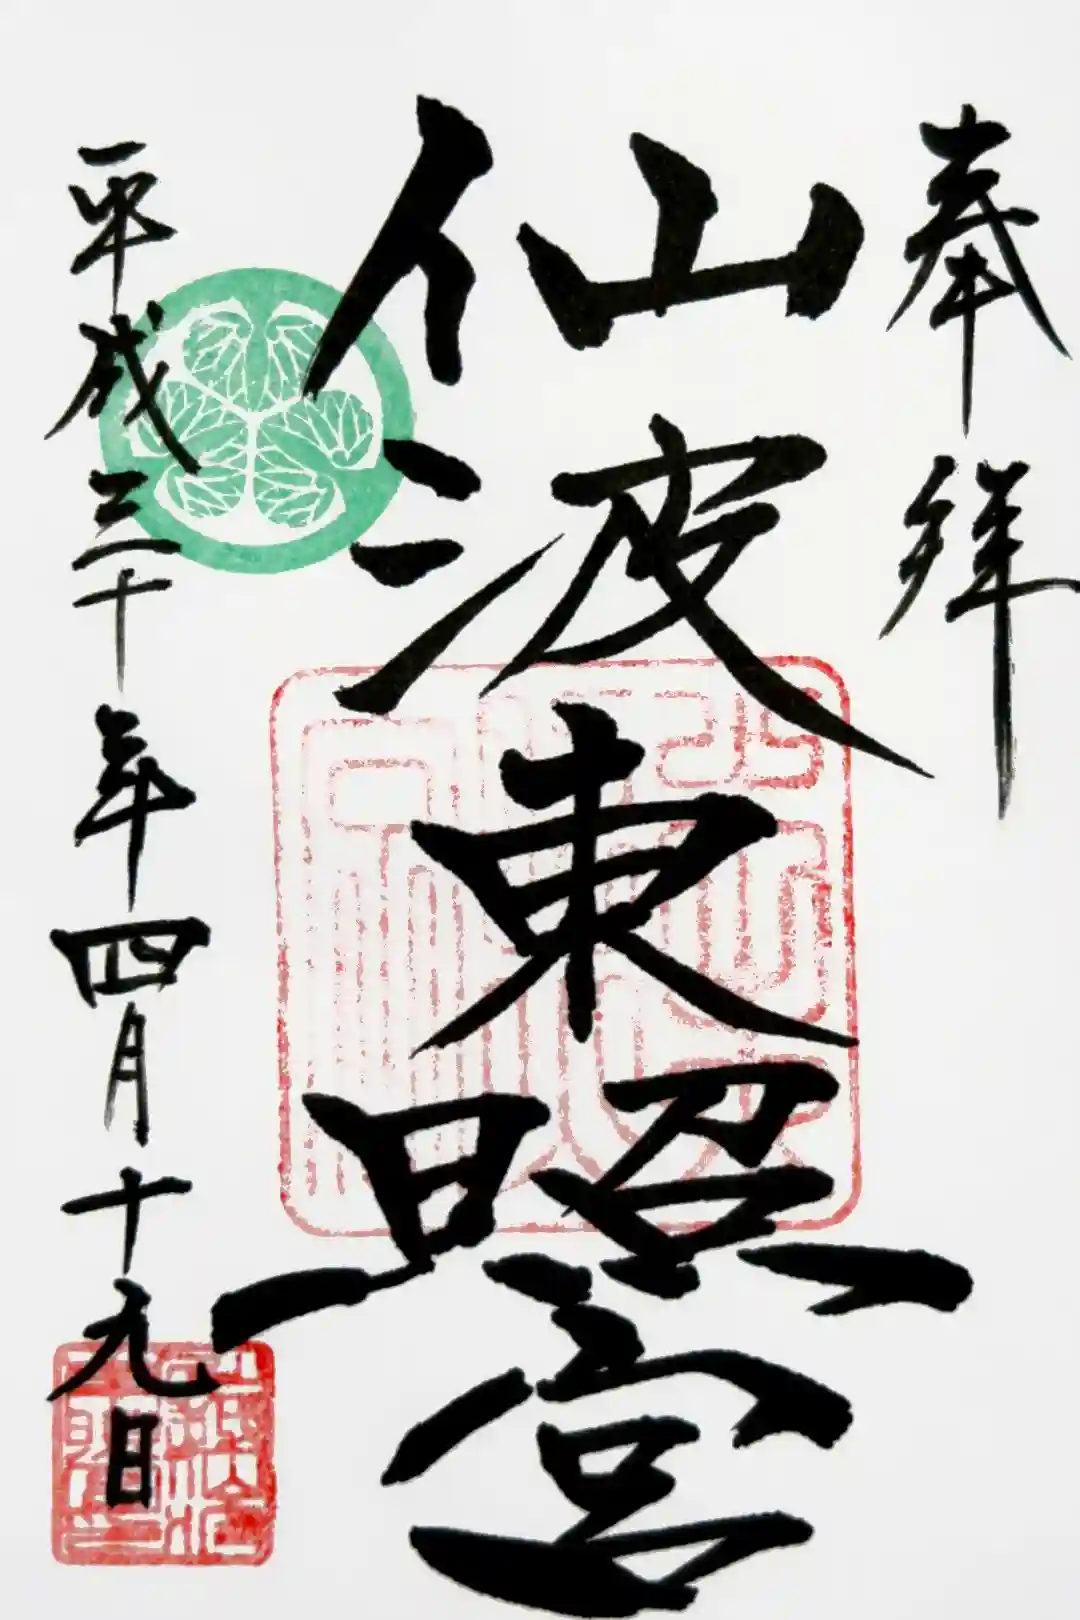 奉拝
仙波東照宮
平成三十年四月十九日